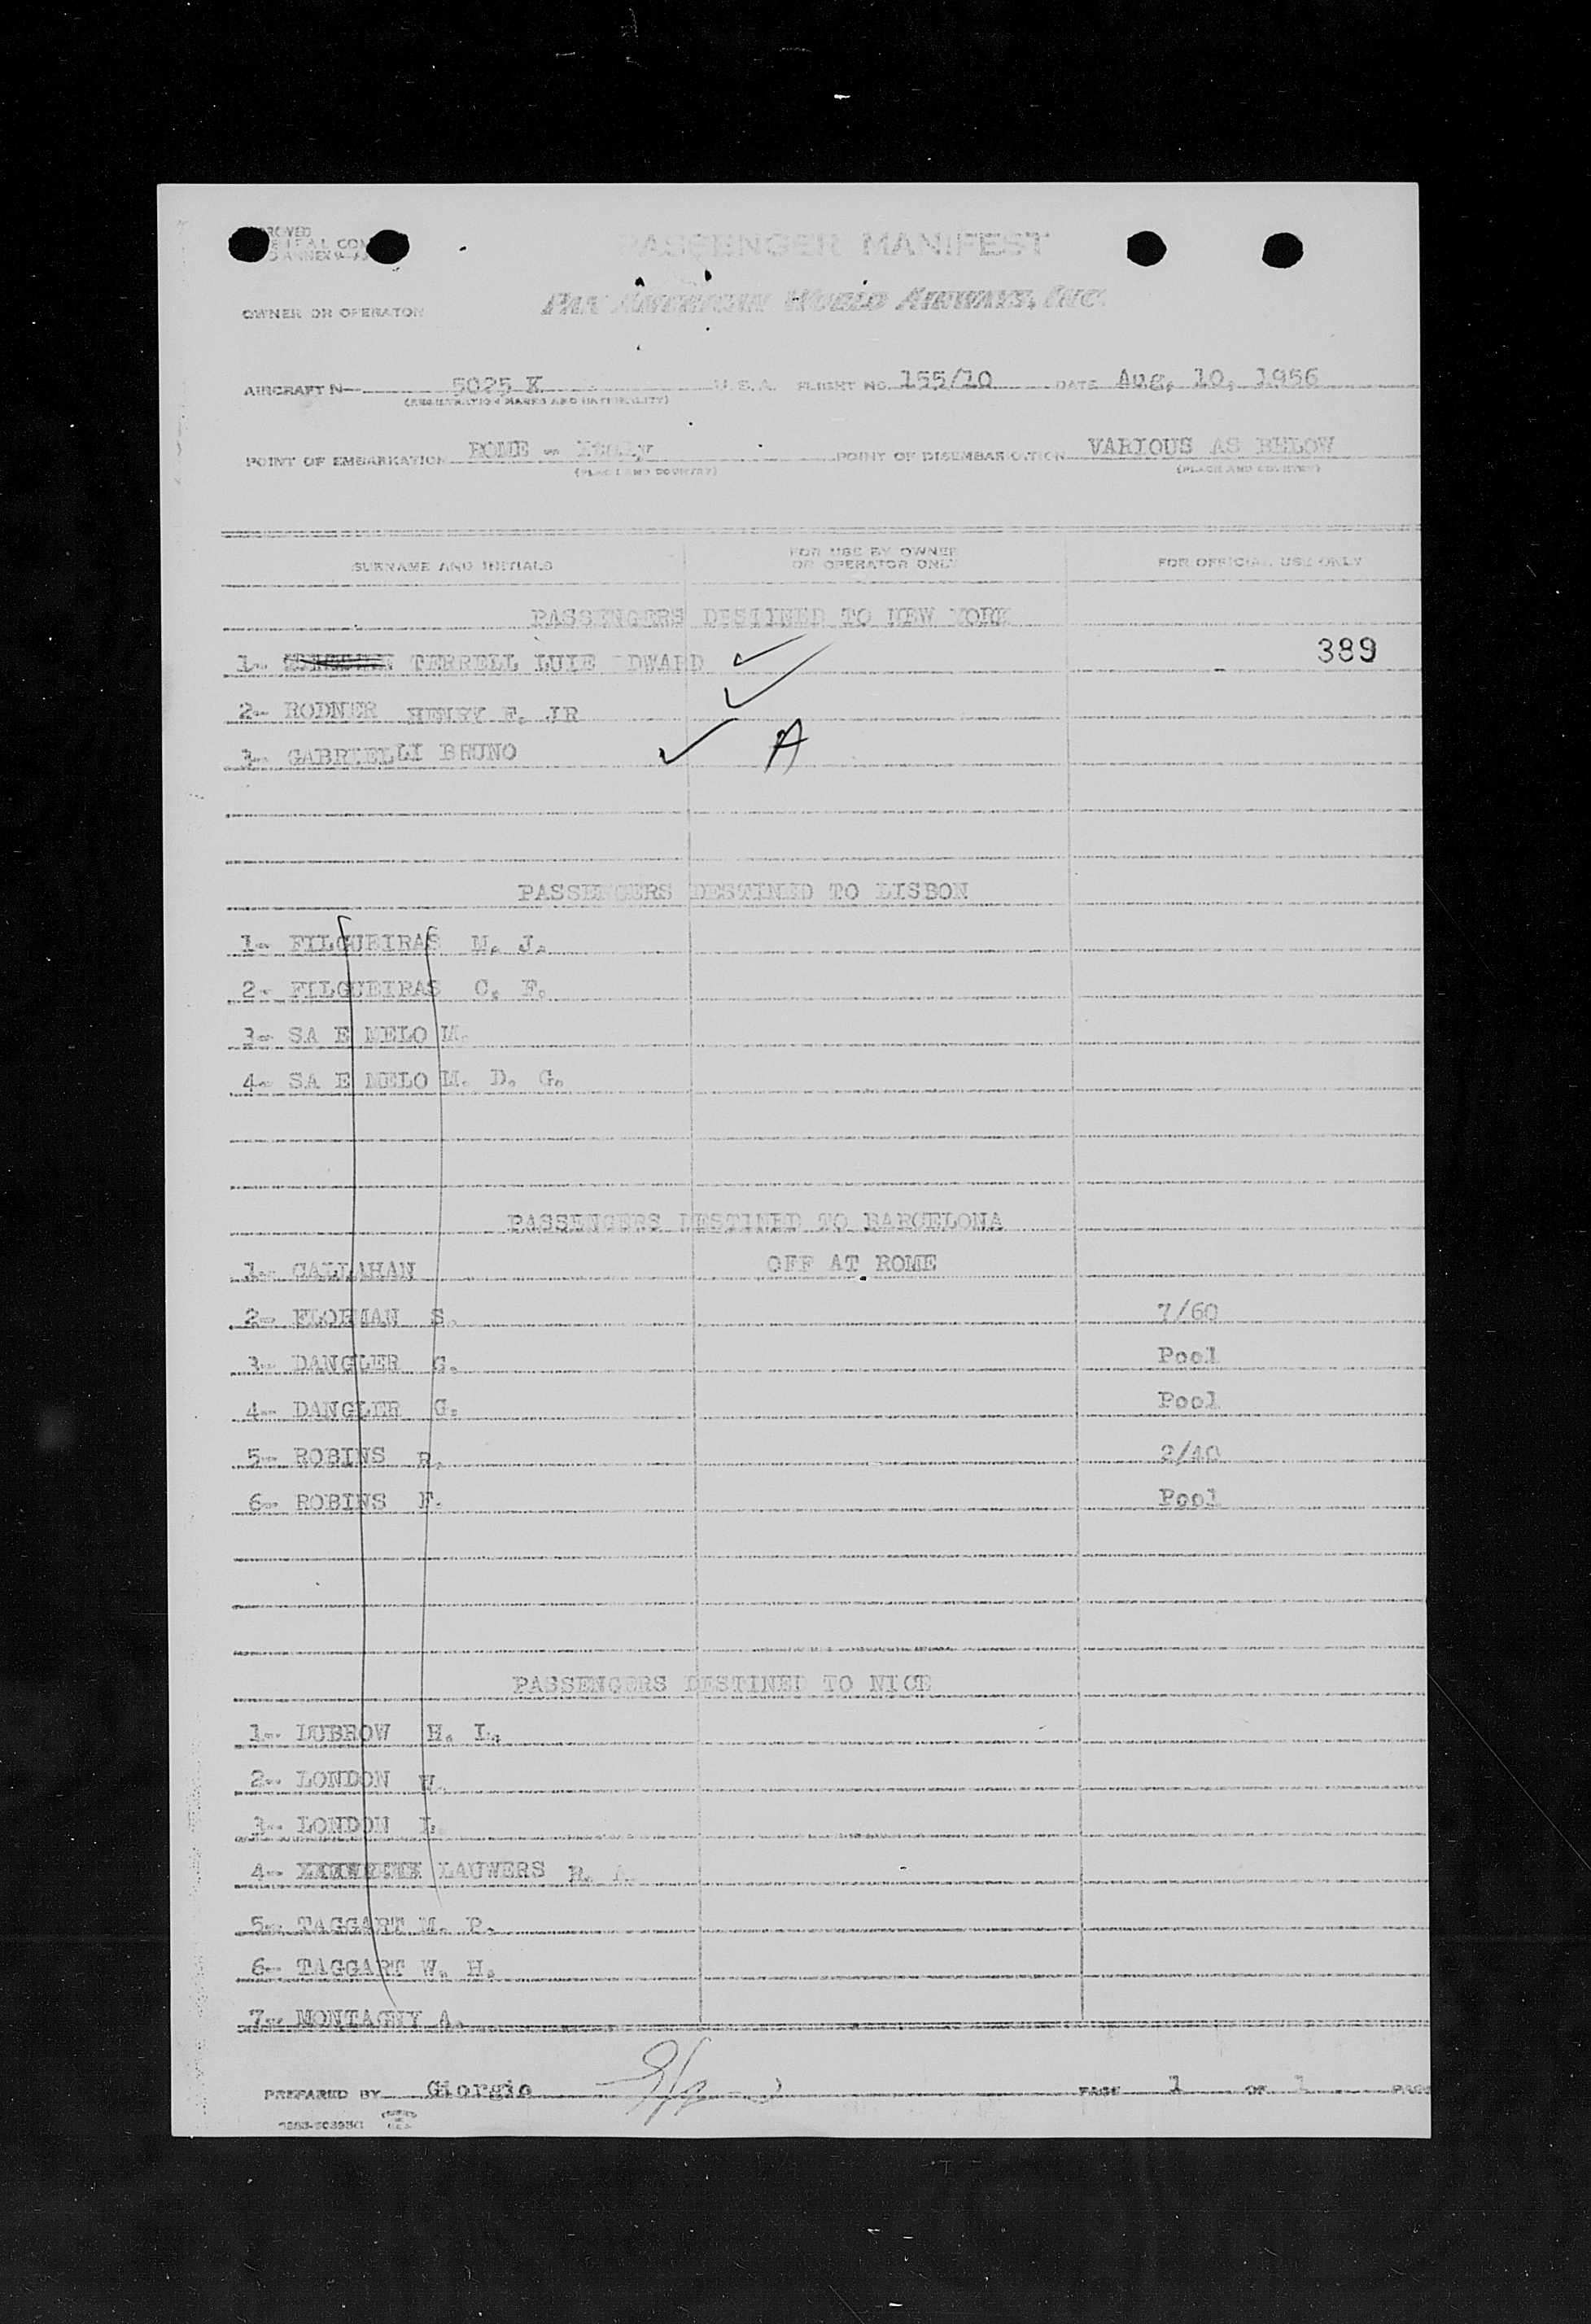 PASSENGER MANIFEST
OWNER OR OPERATOR PAN AMERICAN WORLD AIRWAYS, INC.
AIRCRAFT N- 5025 K U.S.A. FLIGHT NO. 155/10 DATE Aug, 10, 1956
(REGISTRATION MARKS AND NATIONALITY)
POINT OF EMBARKATION ROME - Italy POINT OF DISEMBARKATION VARIOUS AS BELOW
(PLACE AND COUNTRY) (PLACE AND COUNTRY)
SURNAME AND INITIALS FOR USE BY OWNER OR OPERATOR ONLY FOR OFFICIAL USE ONLY
PASSENGERS DESTINED TO NEW YORK
1- TERRELL LUIE EDWARD 389
2- RODNER HENRY F. JR
3- GABRIELLI BRUNO A
PASSENGERS DESTINED TO LISBON
1- FILGUEIRAS M. J.
2- FILGUEIRAS C. F.
3- SA E MELO M.
4- SA E MELO M. D. G.
PASSENGERS DESTINED TO BARCELONA
1- CALLAHAN OFF AT ROME
2- FLORMAN S. 7/60
3- DANGLER G. Pool
4- DANGLER G. Pool
5- ROBINS R. 2/40
6- ROBINS F. Pool
PASSENGERS DESTINED TO NICE
1- DUBROW H. L.
2- LONDON
3- LONDON I.
4- LAUWERS R. A.
5- TAGGART M. P.
6- TAGGART W. H.
7- MONTAGNY A.
PREPARED BY Giorgio PAGE 1 OF 1 PAGE